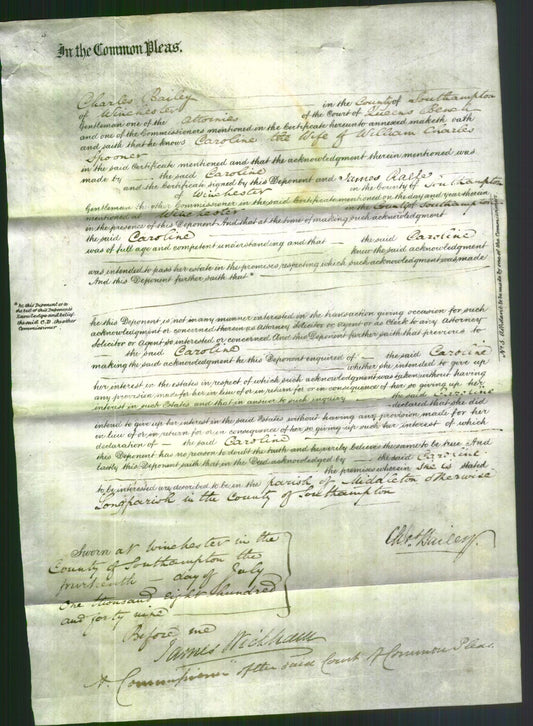 In the Common Pleas.
Charles Bailey
of Winchester in the County of Southampton
Gentleman one of the Attornies of the Court of Queens Bench
and one of the Commissioners mentioned in the Certificate hereunto annexed maketh oath
and saith that he knows Caroline the Wife of William Charles
Spooner
in the said Certificate mentioned and that the acknowledgment therein mentioned was
made by the said Caroline
and the Certificate signed by this Deponent and James
of Winchester in the County of Southampton
Gentleman the other Commissioner in the said Certificate mentioned on the day and year therein
mentioned at Winchester in the County of Southampton
in the presence of this Deponent And that at the time of making such acknowledgment
the said Caroline
was of full age and competent understanding and that the said Caroline
knew the said acknowledgment
was intended to pass her estate in the premises respecting which such acknowledgment was made
And this Deponent further saith that *
he this Deponent is not in any manner interested in the transaction giving occasion for such
acknowledgment or concerned therein as Attorney Solicitor or Agent or as Clerk to any Attorney
Solicitor or Agent so interested or concerned And this Deponent further saith that previous to
the said Caroline
making the said acknowledgment he this Deponent enquired of the said Caroline
whether she intended to give up
her interest in the estates in respect of which such acknowledgment was taken without having
any provision made for her in lieu of or in return for or in consequence of her so giving up her
interest in such Estates and that in answer to such inquiry the said Caroline
declared that she did
intend to give up her interest in the said Estates without having any provision made for her
in lieu of or in return for or in consequence of her so giving up such her interest of which
declaration of the said Caroline
this Deponent has no reason to doubt the truth and he verily believes the same to be true And
lastly this Deponent saith that in the Deed acknowledged by the said Caroline
the premises wherein she is stated
to be interested are described to be in the parish of Middleton otherwise
Longparish in the County of Southampton
Sworn at Winchester in the
County of Southampton the
fourteenth day of July
One thousand eight hundred
and forty nine
Before me
Chas. Bailey
James Wickham
A Commissioner of the said Court of Common Pleas.